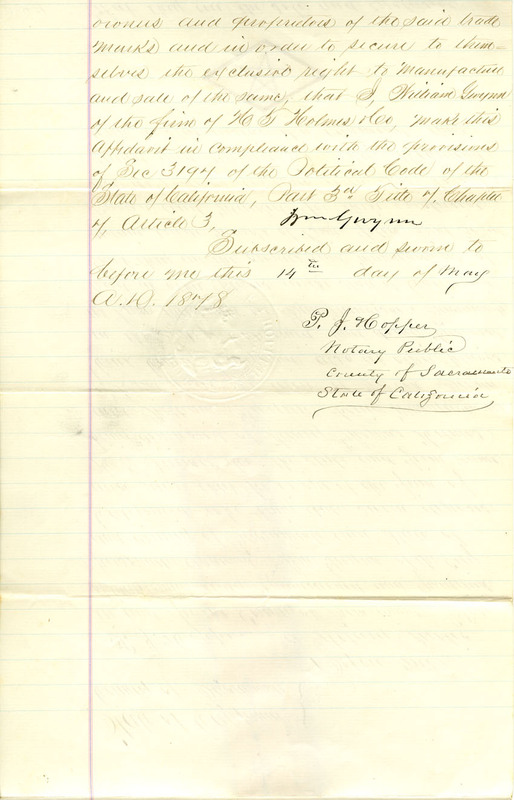 owners and proprietors of the said trade
Marks and in order to secure to them-
selves the exclusive right to Manufacture
and sale of the same, that I, William Gwynn
of the firm of H T Holmes & Co, make this
Affidavit in compliance with the provisions
of Sec 3197 of the Political Code of the
State of California, Part 3d Title 7, Chapter
7, Article 3,
Wm Gwynn
Subscribed and sworn to
before me this 14th day of May
A.D. 1878
P. J. Hopper
Notary Public
County of Sacramento
State of California